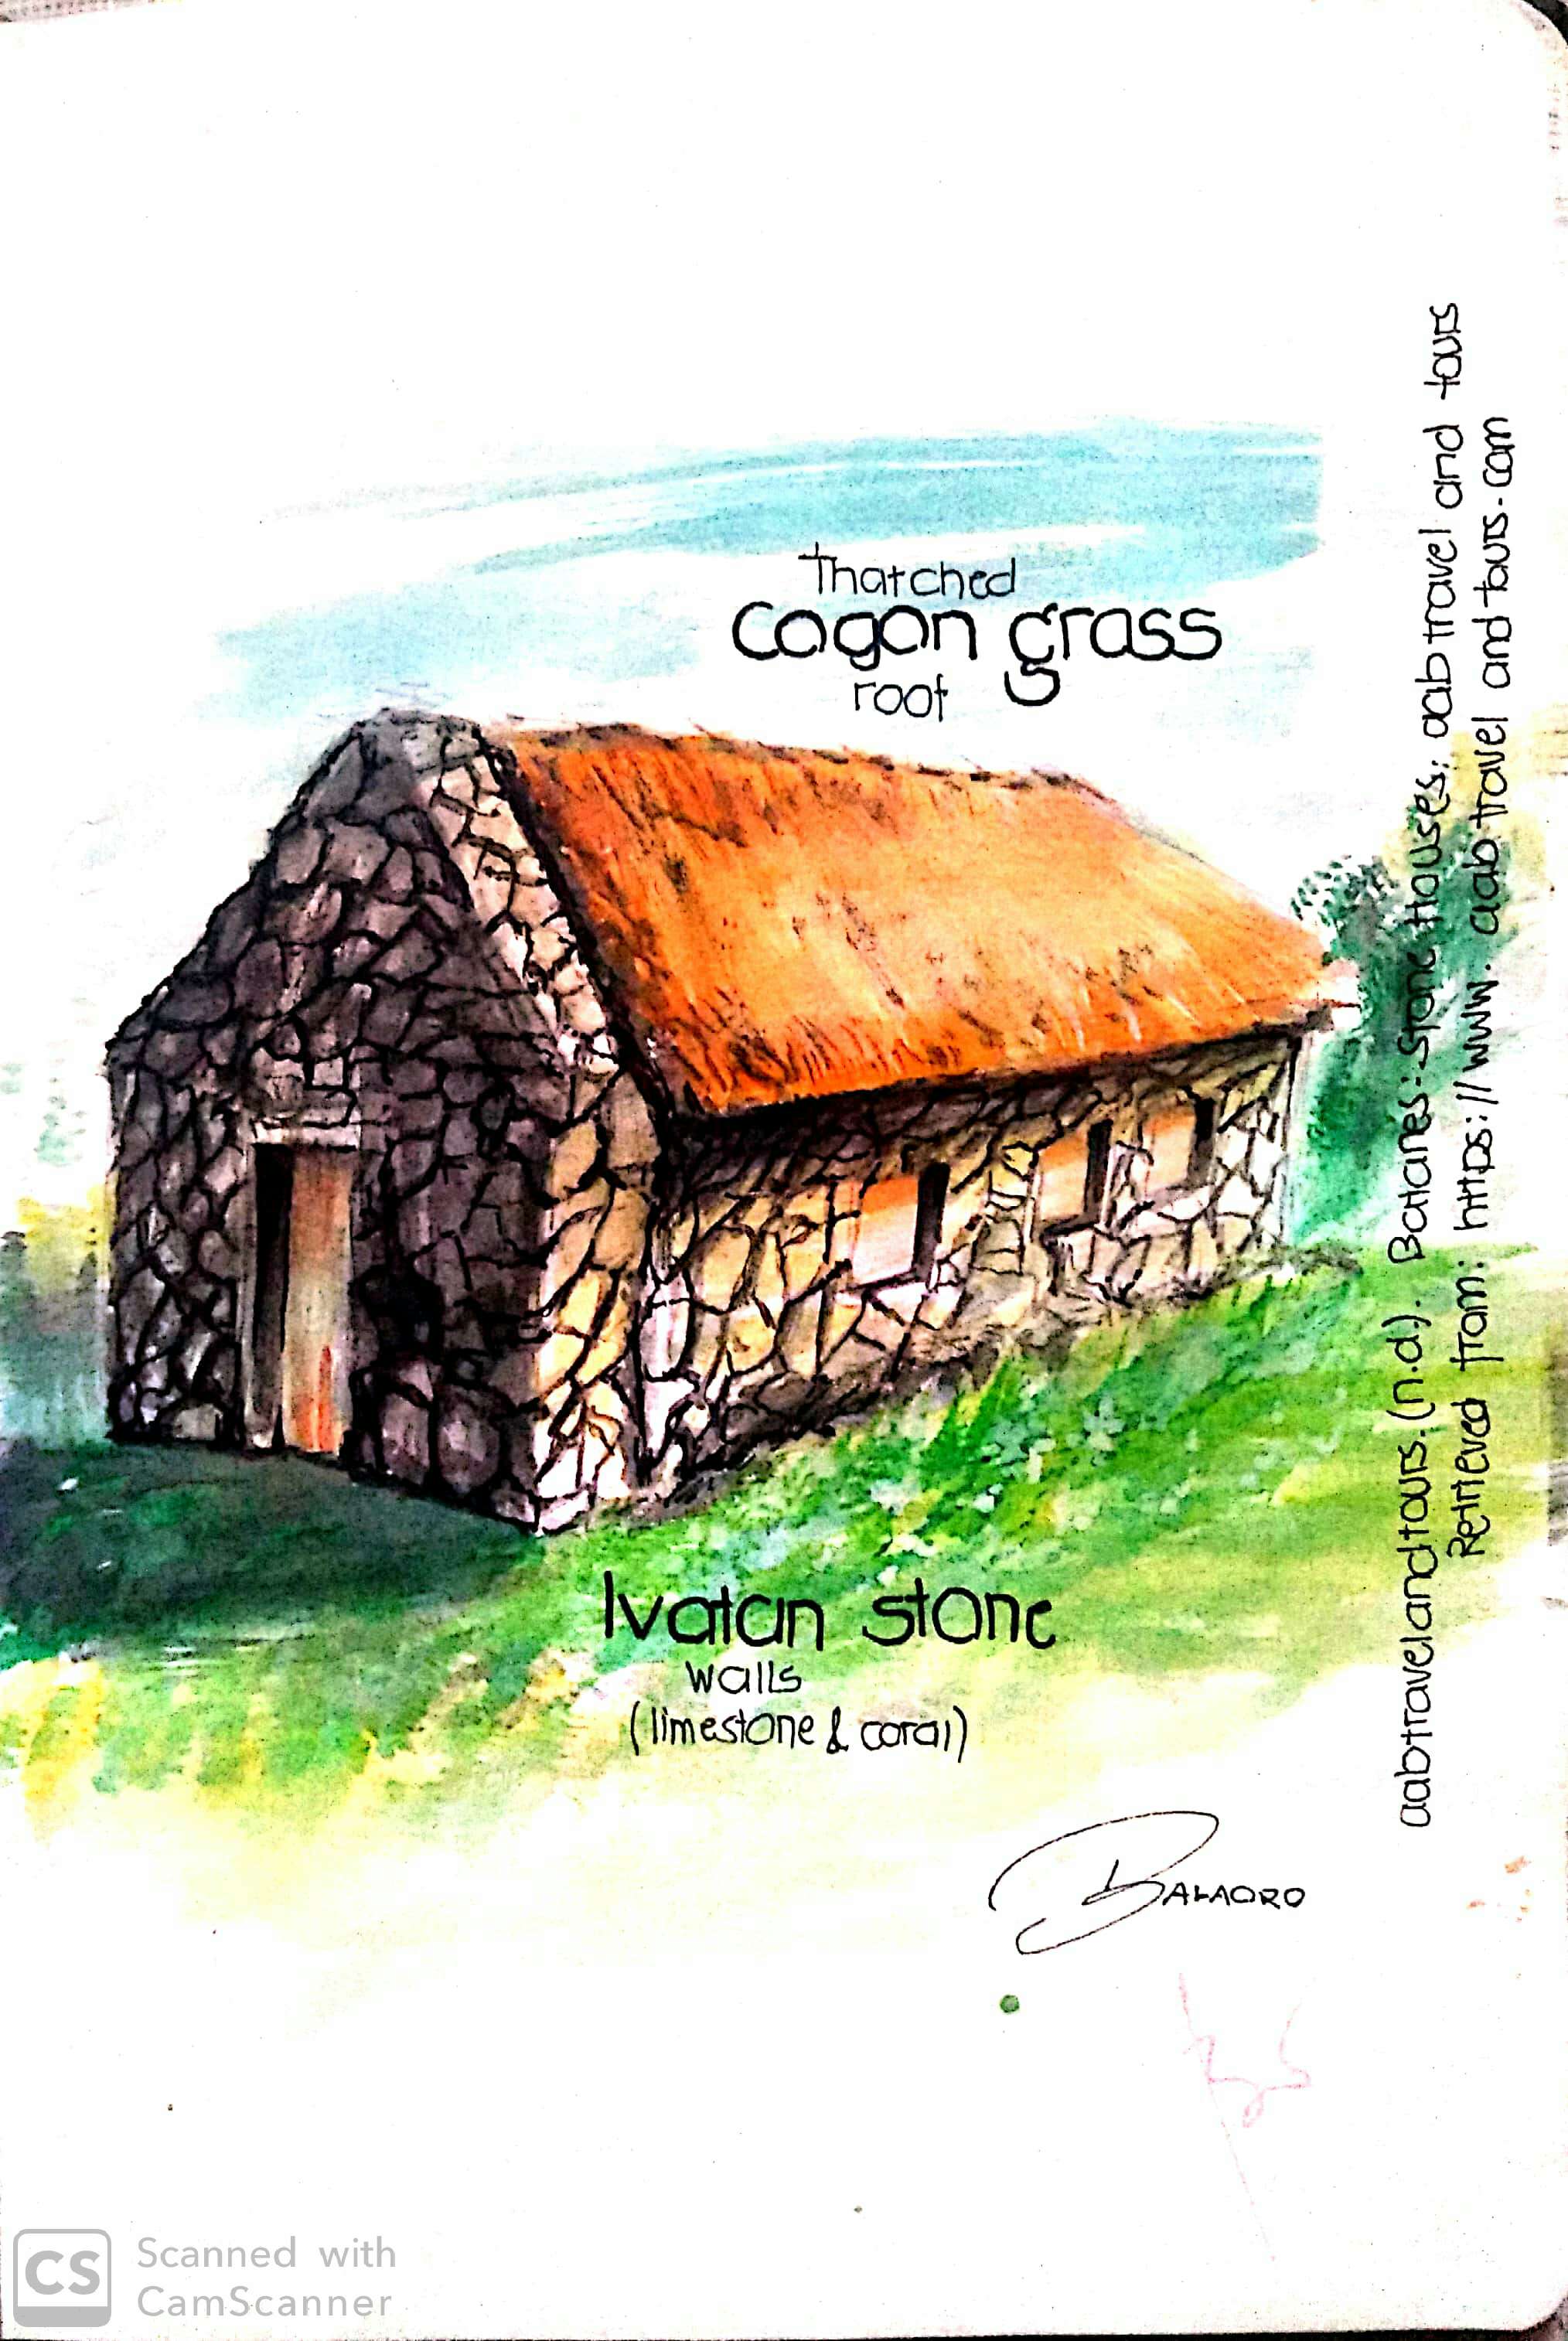 Thatched
Cogon grass
roof
Ivatan stone
walls
(limestone & coral)
BALAORO
aabtravelandtours. (n.d). Batanes: Stone Houses: aab travel and tours
Retrieved from: https://www.aabtravelandtours.com
CS
Scanned with
CamScanner